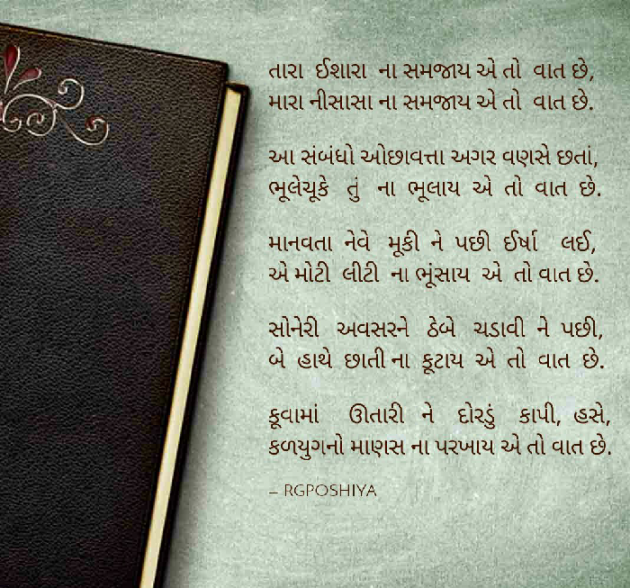 તારા ઈશારા ના સમજાય એ તો વાત છે,
મારા નીસાસા ના સમજાય એ તો વાત છે.
આ સંબંધો ઓછાવત્તા અગર વણસે છતાં,
ભૂલેચૂકે તું ના ભૂલાય એ તો વાત છે.
માનવતા નેવે મૂકી ને પછી ઈર્ષા લઈ,
એ મોટી લીટી ના ભૂંસાય એ તો વાત છે.
સોનેરી અવસરને ઠેબે ચડાવી ને પછી,
બે હાથે છાતી ના કૂટાય એ તો વાત છે.
કૂવામાં ઊતારી ને દોરડું કાપી, હસે,
કળયુગનો માણસ ના પરખાય એ તો વાત છે.
– RGPOSHIYA